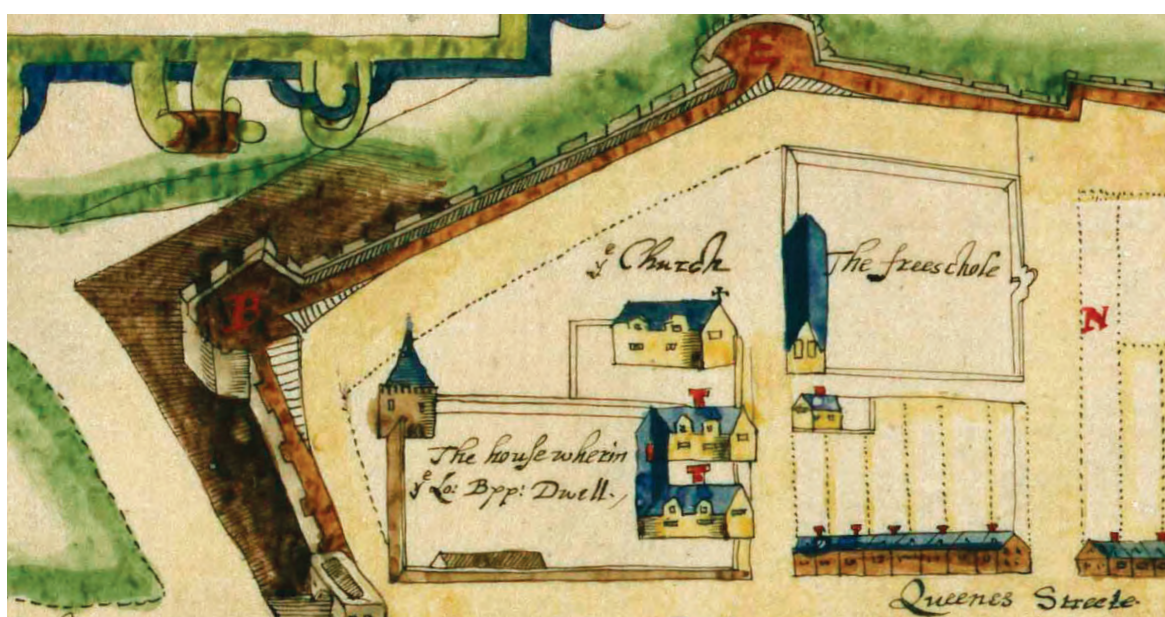 E
yͤ Church
The freeschole
B
N
The house wherin
yͤ Lo: Bpp: Dwell.
Queenes Streete.